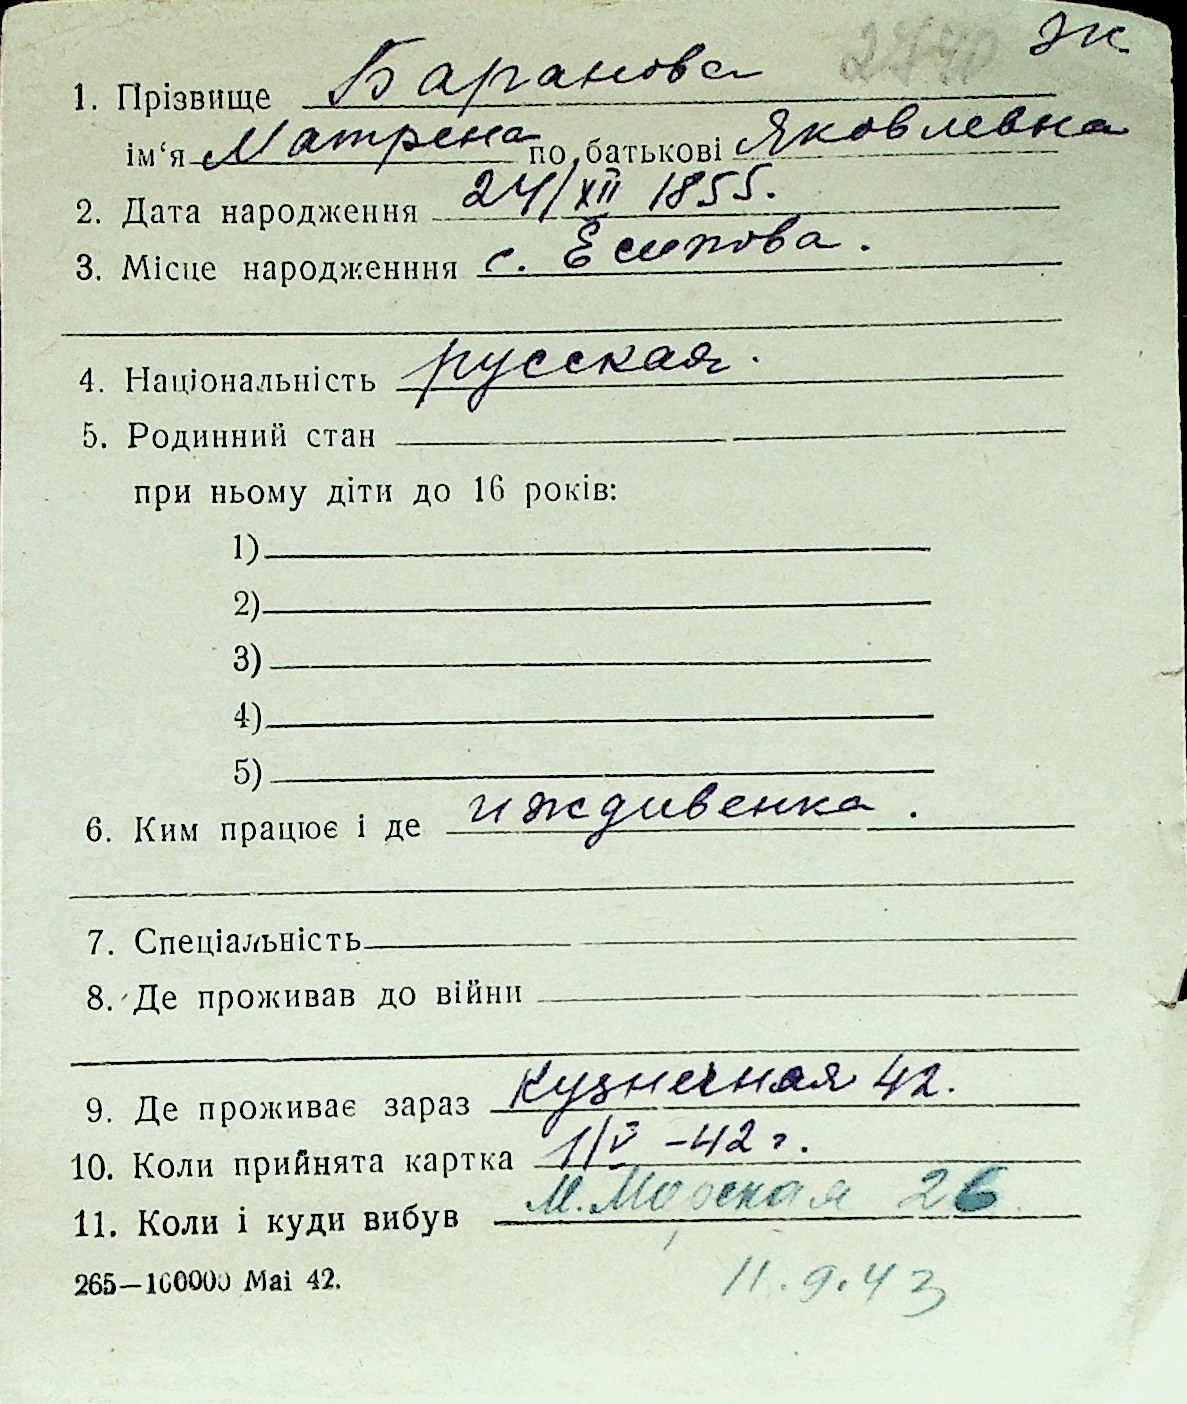 2440 Ж
1. Прізвище Баранова
ім‘я Матрена по батькові Яковлевна
2. Дата народження 24/XII 1855.
3. Місце народженння с. Есипова.
4. Національність русская.
5. Родинний стан
при ньому діти до 16 років:
1)
2)
3)
4)
5)
6. Ким працює і де иждивенка.
7. Спеціальність
8. Де проживав до війни
9. Де проживає зараз Кузнечная 42.
10. Коли прийнята картка 1/V -42 г.
11. Коли і куди вибув М. Морская 26
265—100000 Mai 42.
11.9.43